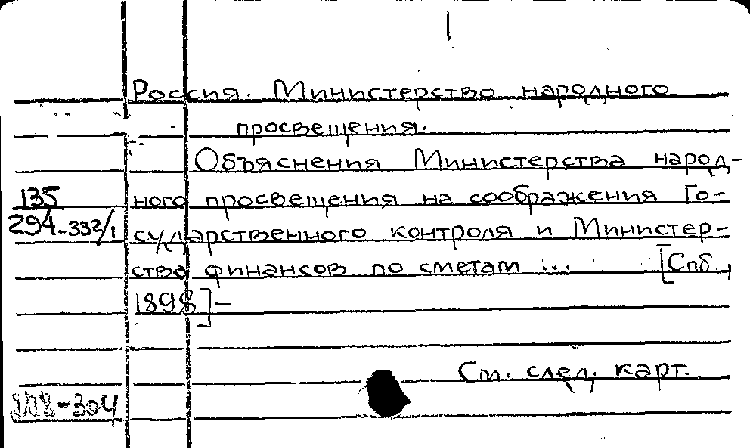 Россия. Министерство народного
просвещения.
Объяснения Министерства народ-
135
ного просвещения на соображения Го-
294-332/1
сударственного контроля и Министер-
ства финансов по сметам ... [Спб,
1898]-
См. след. карт.
-304